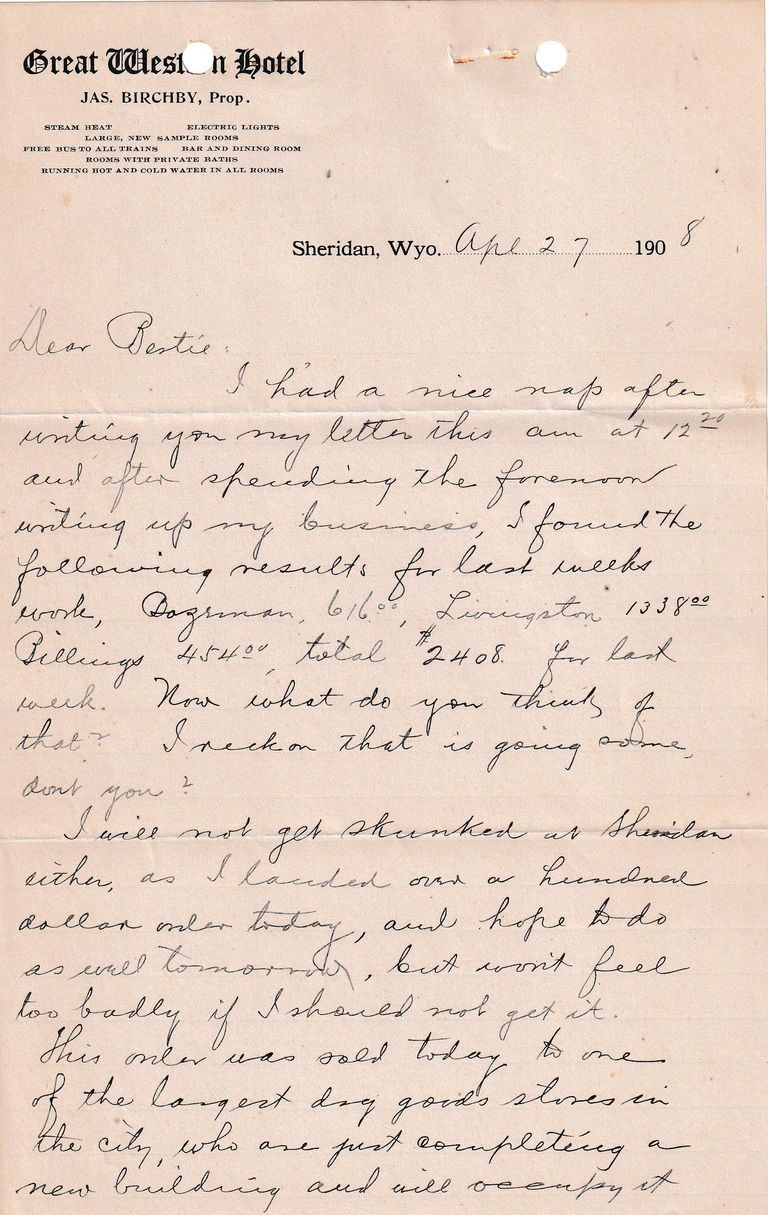 Great Western Hotel
JAS. BIRCHBY, Prop.
STEAM HEAT ELECTRIC LIGHTS
LARGE, NEW SAMPLE ROOMS
FREE BUS TO ALL TRAINS BAR AND DINING ROOM
ROOMS WITH PRIVATE BATHS
RUNNING HOT AND COLD WATER IN ALL ROOMS
Sheridan, Wyo. Apl 27 1908
Dear Bertie:
I had a nice nap after
writing you my letter this am at 12 20
and after spending the forenoon
writing up my business, I found the
following results for last weeks
work, Bozeman, 616.00, Livingston 1338 00
Billings 454 00, total $2408. for last
week. Now what do you think of
that? I reckon that is going some,
dont you?
I will not get skunked at Sheridan
either, as I landed over a hundred
dollar order today, and hope to do
as well tomorrow, but won't feel
too badly if I should not get it.
This order was sold today to one
of the largest dry goods stores in
the city, who are just completing a
new building and will occupy it